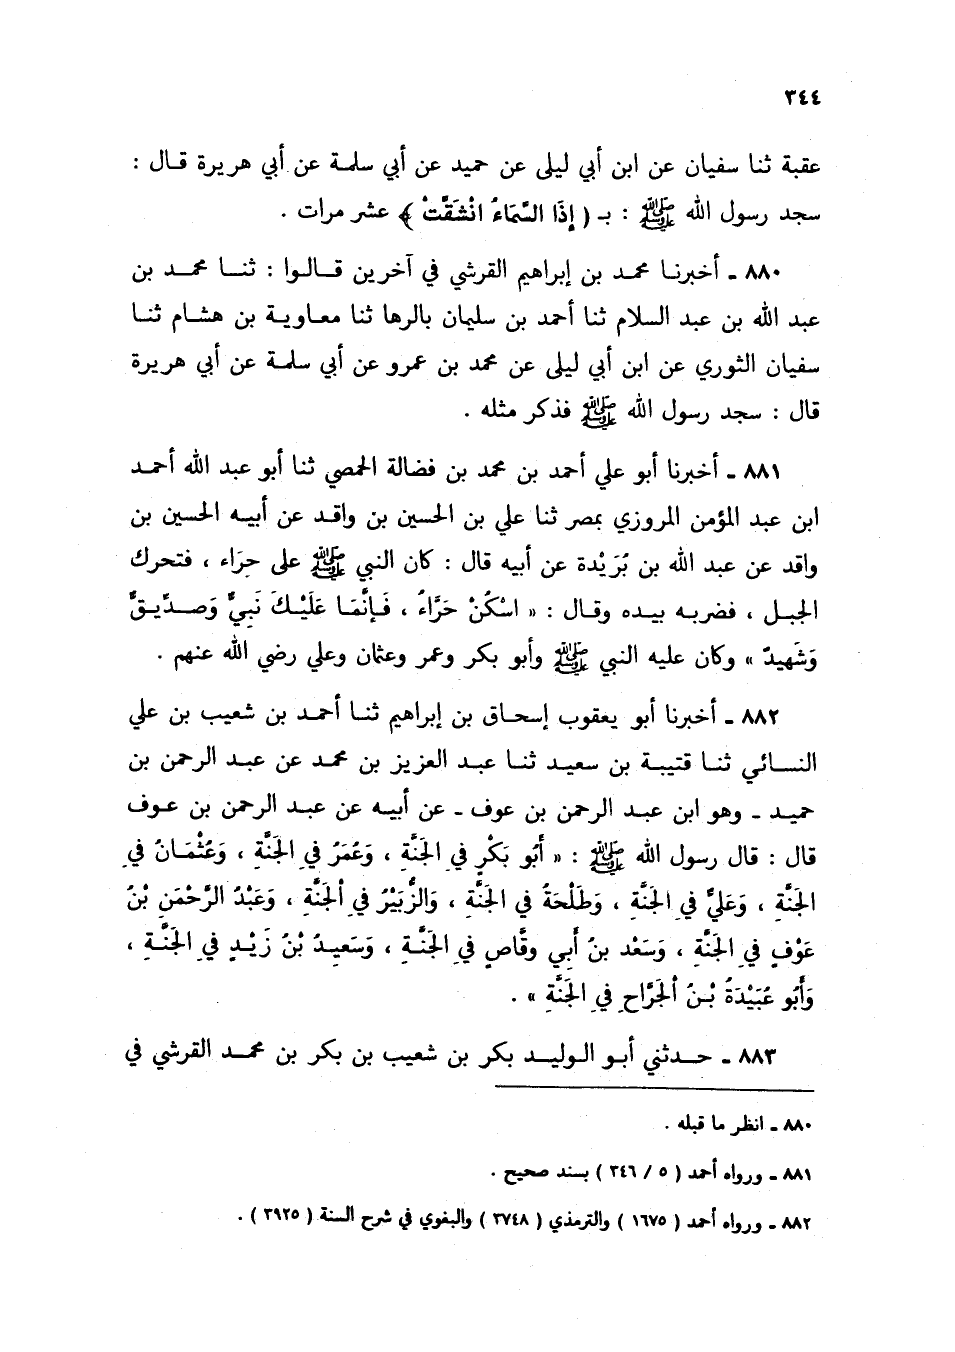 ٣٤٤
عقبة ثنا سفيان عن ابن أبي ليلى عن حميد عن أبي سلمة عن أبي هريرة قال :
سجد رسول الله ﷺ : بـ ( إِذَا السَّمَاءُ انْشَقَّتْ ﴾ عشر مرات .
٨٨٠ ـ أخبرنا محمد بن إبراهيم القرشي في آخرين قالوا : ثنا محمد بن
عبد الله بن عبد السلام ثنا أحمد بن سليمان بالرها ثنا معاوية بن هشام ثنا
سفيان الثوري عن ابن أبي ليلى عن محمد بن عمرو عن أبي سلمة عن أبي هريرة
قال : سجد رسول الله ﷺ فذكر مثله .
٨٨١ ـ أخبرنا أبو علي أحمد بن محمد بن فضالة الحمصي ثنا أبو عبد الله أحمد
ابن عبد المؤمن المروزي بمصر ثنا علي بن الحسين بن واقد عن أبيه الحسين بن
واقد عن عبد الله بن بُرَيْدة عن أبيه قال : كان النبي ﷺ على حِرَاء ، فتحرك
الجبل ، فضربه بيده وقال : « اسْكُنْ حَرَّاءُ ، فَإِنَّمَا عَلَيْكَ نَبِيٌّ وَصِدِّيقٌ
وَشَهِيدٌ » وكان عليه النبي ﷺ وأبو بكر وعمر وعثمان وعلي رضي الله عنهم .
٨٨٢ ـ أخبرنا أبو يعقوب إسحاق بن إبراهيم ثنا أحمد بن شعيب بن علي
النسائي ثنا قتيبة بن سعيد ثنا عبد العزيز بن محمد عن عبد الرحمن بن
حميد ـ وهو ابن عبد الرحمن بن عوف ـ عن أبيه عن عبد الرحمن بن عوف
قال : قال رسول الله ﷺ : « أَبُو بَكْرٍ فِي الجَنَّةِ ، وَعُمَرُ فِي الجَنَّةِ ، وَعُثْمَانُ فِي
الجَنَّة ، وَعَلِيٌّ فِي الجَنَّةِ ، وَطَلْحَةُ فِي الجَنَّةِ ، وَالزُّبَيْرُ فِي اُلجَنَّةِ ، وَعَبْدُ الرَّحْمَنِ بْنُ
عَوْفٍ فِي الجَنَّةِ ، وَسَعْد بنُ أَبِي وقَّاصٍ فِي الجَنَّةِ ، وَسَعِيدُ بْنُ زَيْدٍ فِي الجَنَّةِ ،
وَأَبُو عُبَيْدَةُ بْنُ اُلجَرَّاحِ فِي الجَنَّةِ » .
٨٨٣ ـ حدثني أبو الوليد بكر بن شعيب بن بكر بن محمد القرشي في
٨٨٠ ـ انظر ما قبله .
٨٨١ ـ ورواه أحمد ( ٥ / ٣٤٦ ) بسند صحيح .
٨٨٢ ـ ورواه أحمد ( ١٦٧٥ ) والترمذي ( ٣٧٤٨ ) والبغوي في شرح السنة ( ٣٩٢٥ ) .